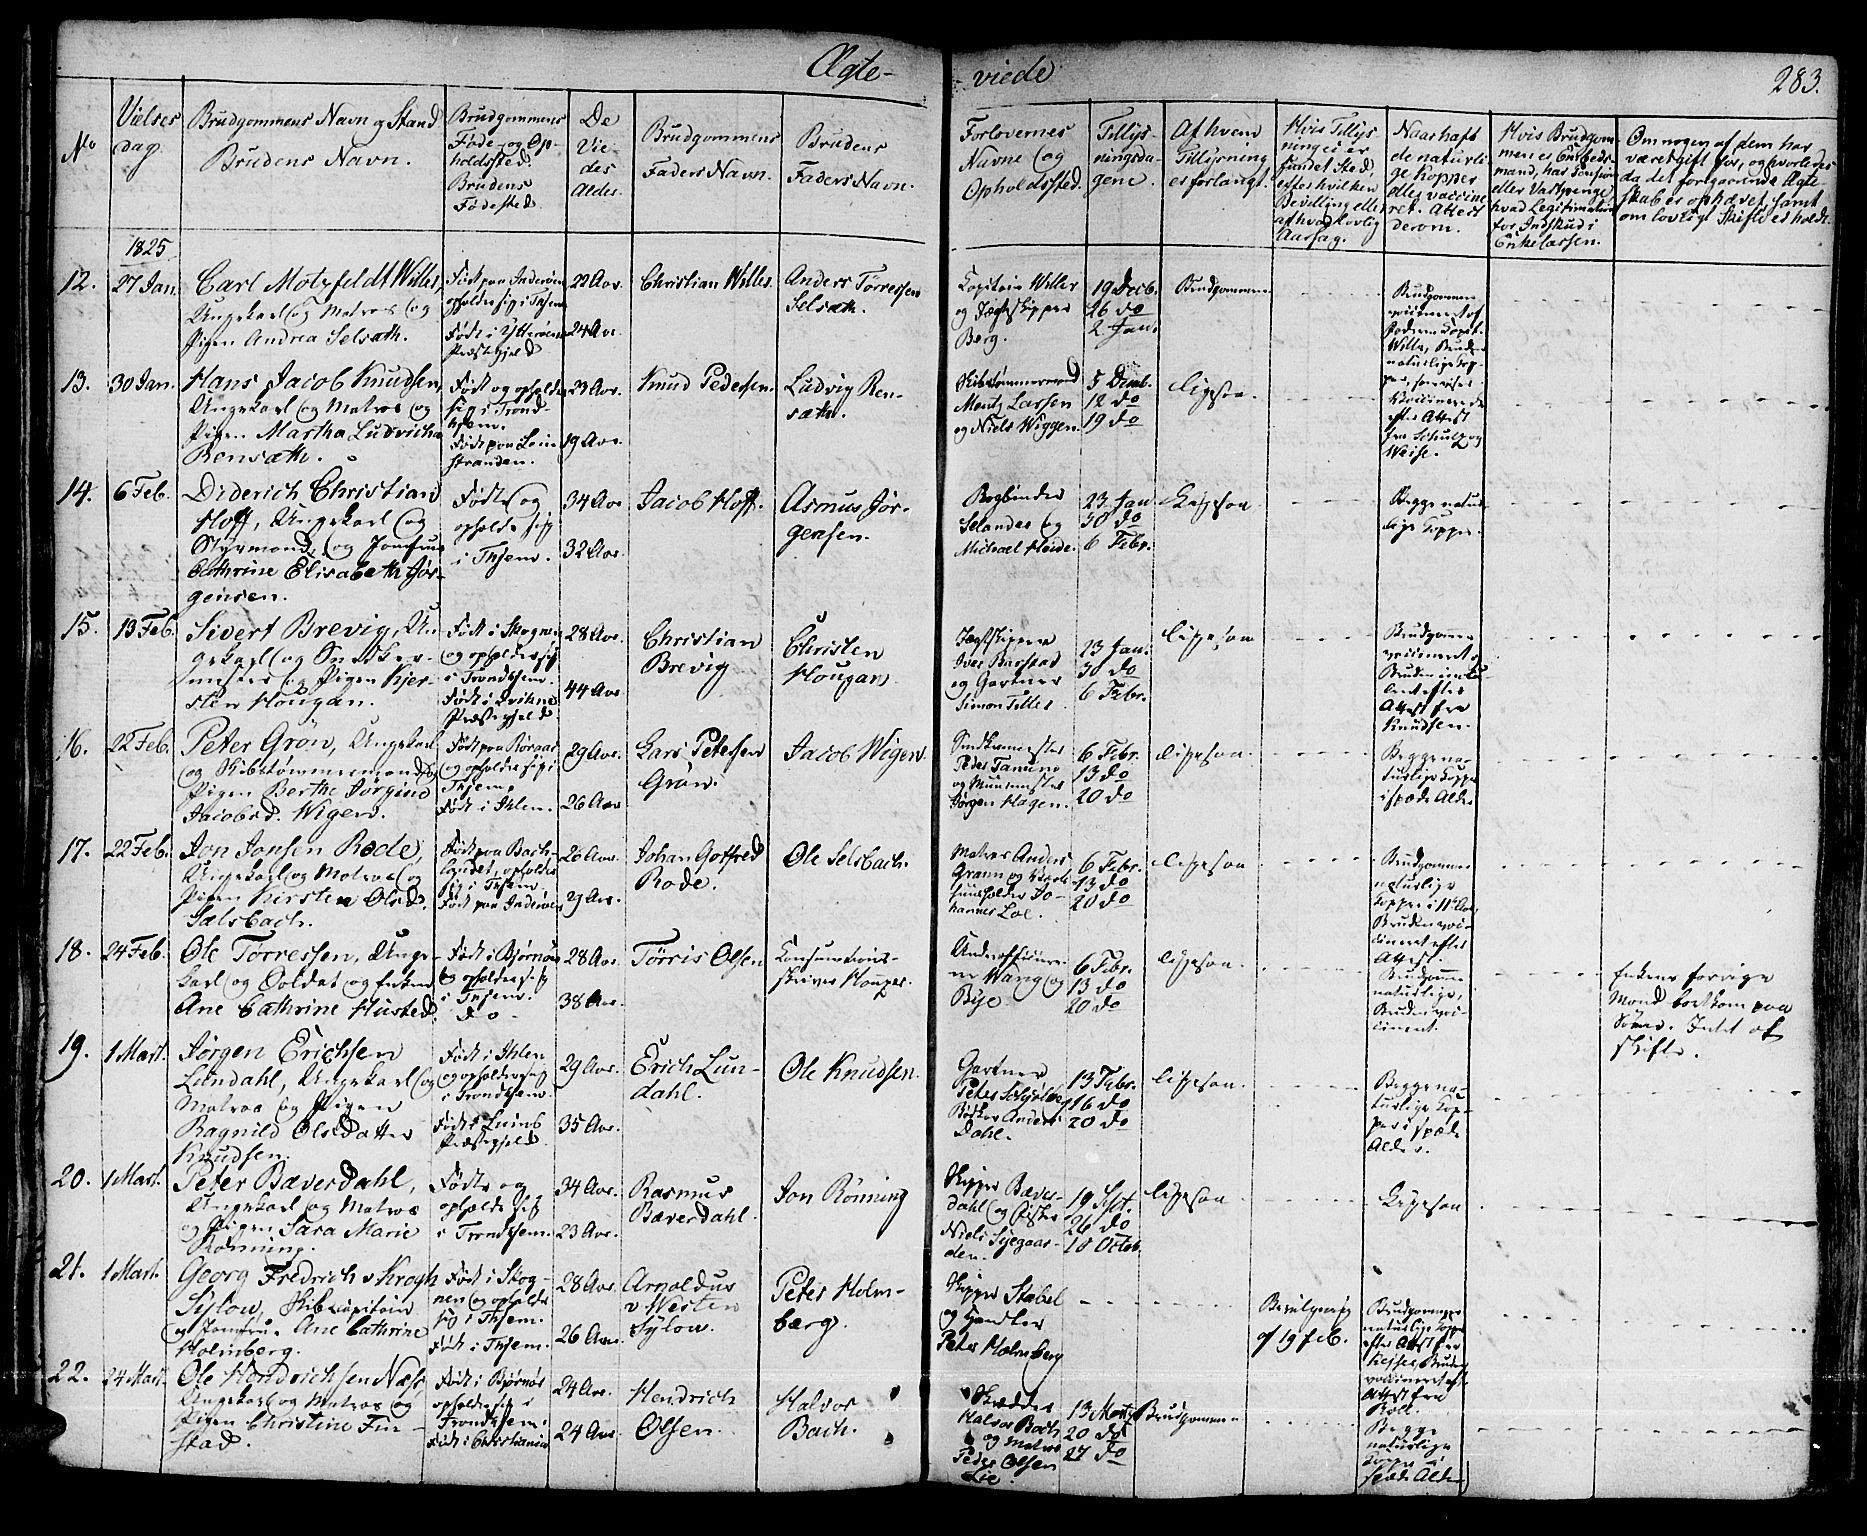 Ægte-
-viede
283.
No
Vielses
dag.
Brudgommens Navn og Stand
Brudens Navn.
Brudgommens
Føde- og Op-
holdsted.
Brudens
Fødested.
De
Vie-
des
Alder.
Brudgommens
Faders Navn.
Brudens
Faders Navn.
Forlovernes
Navne og
Opholdssted.
Tillys-
ningsda-
gene.
Af hvem
Tillysning
er forlangt.
Hvis Tillys
ning ei er
fundet Sted,
efter hvilken
Bevilling eller
af hvad lovlig
Aarsag.
Naar havt
de naturli-
ge Kopper
eller vaccine
ret. Attest
derom.
Hvis Brudgom-
men er Embeds-
mand, har Pension
eller Vartpenge
hvad Legitimation
for Indskud i
Enkekassen.
Om nogen af dem har
været gift før, og hvorledes
da det foregaaende Ægte
skab er ophævet, samt
om lovligt Skifte er holdt.
1825
12.
27 Jan.
Carl Motzfeldt Wille,
Ungekarl og Matros og
Pigen Andrea Selsæth.
Født paa Inderøen
opholder sig i Thjem
Født i Ytterøens
Præstegjeld
22 Aar.
24 Aar.
Christian Wille.
Anders Tørressen
Selsæth.
Kapitain Wille
og Jægteskipper
Berg.
19 Decb.
26 do
2 Jan.
Brudgommen
Brudgommen
vaccineret af
Faderen Kapit.
Wille, Bruden
naturlige Kop-
per,
13.
30 Jan.
Hans Jacob Knudsen,
Ungekarl og Matros og
Pigen Martha Ludvicha
Rensæth.
Født og opholder
sig i Trond-
hjem.
Født paa Lein
stranden.
23 Aar.
19 Aar.
Knud Pedersen.
Ludvig Ren-
sæth.
Skibstømmermand
Mentz Larsen
og Niels Wiggen.
5 Decemb.
12 do
19 do
ligesaa.
Vaccinerede
efter Attest
fra Schultz og
Weise.
14.
6 Feb.
Diderich Christian
Hoff, Ungekarl og
Styrmand, og Jomfrue
Cathrine Elisabeth Jør-
gensen.
Født og
opholder sig
i Thjem.
34 Aar
32 Aar.
Jacob Hoff.
Asmus Jør-
gensen.
Bogbinder
Selander og
Michael Heide.
23 Jan
30 do
6 Febr.
Ligesaa
Begge natur
lige Kopper.
15.
13 Feb.
Sivert Brevig, Un-
gekarl og Snedker-
mester og Pigen Kjer-
sten Hougan.
Født i Skogn
og opholder sig
i Trondhjem.
Født i Qvikne
Præstegjeld
28 Aar.
44 Aar
Christian
Brevig
Christen
Hougan.
Jægtskipper
Iver Barstad
og Gartner
Simon Tiller.
23 Jan.
30 do
6 Febr.
ligesaa
Brudgommen
vaccineret og
Bruden
efter
Attest fra
Knudsen.
16.
22 Feb.
Peter Grøn, Ungekarl
og Skibstømmermand og
Pigen Berthe Jørgine
Jacobsd. Wigen.
Født paa Røraas
og opholder sig i
Thjem.
Født i Ihlen.
29 Aar.
26 Aar
Lars Petersen
Grøn.
Jacob Wigen.
Snedkermester
Peder Tanemo
og Muurmester
Jørgen Hagen.
6 Febr.
13 do
20 do
ligesaa.
Begge na-
turlige Kopper
i spæde Alder
17.
22 Feb.
Jon Jonsen Rode,
Ungekarl og Matros og
Pigen Kirsten Olsd.
Sælsbach.
Født paa Bach-
landet, opholder
sig i Thjem.
Født paa Inderøen
26 Aar.
29 Aar.
Johan Gotfred
Rode.
Ole Selsbach.
Matros Anders
Grann og
huusholder Jo-
hannes Loe.
6 Febr.
13 do
20 do
ligesaa
Brudgommen
naturlige
Kopper i 11te Aar,
Bruden vac-
cineret efter
Attest.
18.
24 Feb.
Ole Tørressen, Unge-
karl og Soldat og Enken
Ane Cathrine Husted.
Født i Bjørnør
og opholder sig
i Thjem.
do
28 Aar.
38 Aar.
Tørris Olsen
Konsumtions-
skriver Houper.
Underofficierer-
ne Wang og
Bye.
6 Febr.
13 do
20 do
ligesaa
Brudgommen
naturlige,
Bruden vac-
cineret.
Enkens forrige
Mand bortkom paa
Søen. Intet at
skifte.
19.
1 Mart.
Jørgen Erichsen
Lundahl, Ungekarl og
Matros og Pigen
Ragnild Olsdatter
Knudsen.
Født i Ihlen
og opholder sig
i Trondhjem.
Født i Leins
Præstegjeld.
29 Aar.
35 Aar.
Erich Lun-
dahl.
Ole Knudsen.
Gartner
Peter Solsjøberg
Bødker Anders
Dahl.
13 Febr.
16 do
20 do
ligesaa.
Begge na-
turlige Kop-
per i spæde
Alder.
20.
1 Mart.
Peter Bæverdahl,
Ungekarl og Matros
og Pigen Sara Marie
Rønning.
Født og
opholder sig
i Trondhjem.
34 Aar.
23 Aar.
Rasmus
Bæverdahl.
Jon Rønning
Skipper Bæver-
dahl og Fisker
Niels Syegaar-
den.
19 Sept.
26 do
10 Octob.
ligesaa
Ligesaa
21.
1 Mart.
Georg Fredrich v Krogh
Sylow, Skibscapitain
og Jomfru Ane Cathrine
Holmberg.
Født i Skog-
nen og opholder
sig i Thjem.
Født i Thjem.
28 Aar.
26 Aar.
Arnoldus
v Westen
Sylow.
Peter Holm-
berg.
Skipper Stabel
og Handler
Peter Holmberg
Bevilgning
af 19 Feb.
Brudgommen
naturlige Kopper
efter Attest fra
Bruden
vaccineret efter
Attest fra
Boll.
22.
24 Mart.
Ole Hendrichsen Næss
Ungekarl og Matros og
Pigen Christine Fin-
stad.
Født i Bjørnør
opholder sig i
Trondhjem.
Født i Christiania
24 Aar.
24 Aar.
Hendrich
Olsen.
Halvor
Bach.
Skrædder
Halvor Bach
og Matros
Peder Olsen
Lie.
13 Marty
20 do
27 do
Brudgommen
Begge
naturlige
Kopper i
spæde Alder